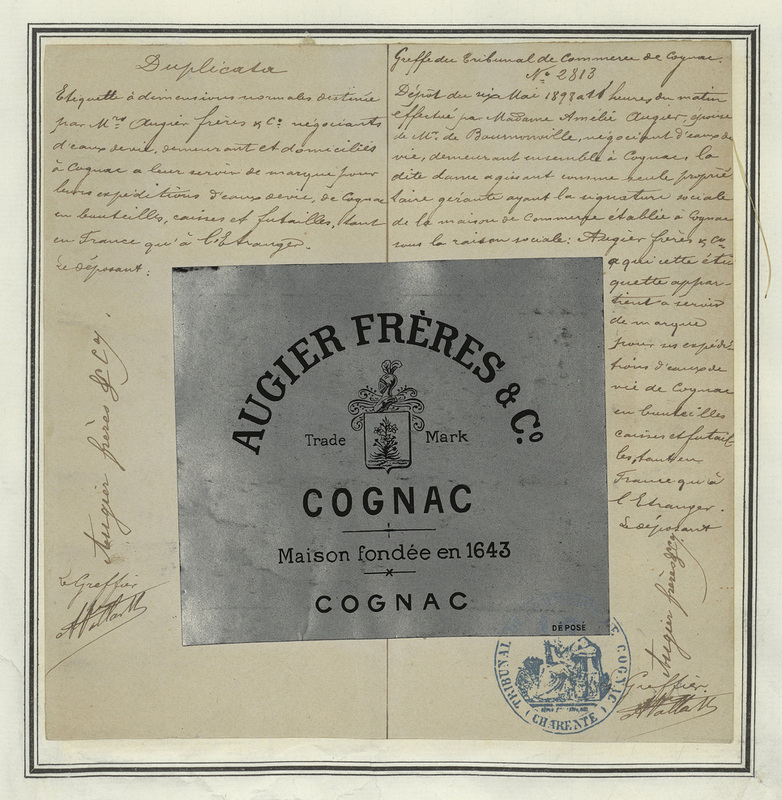 Duplicata
Etiquette à dimensions normales destinée
par Mrs Augier frères & Co négociants
d'eaux de vie, demeurant et domiciliés
à Cognac a leur servir de marque pour
leurs expéditions d'eaux de vie, de Cognac
en bouteilles, caisses et futailles, tant
en France qu'à l'Etranger.
Le déposant:
Augier frères & Cy.
Le Greffier
Greffe du Tribunal de Commerce de Cognac.
No 2813
Dépôt du six Mai 1893 à heures du matin
effectué par Madame Amélie Augier, épouse
de Mr. de Bournonville, négociant d'eaux de
vie, demeurant ensemble à Cognac, la
dite dame agissant comme seule proprié
taire gérante ayant la signature sociale
de la maison de Commerce établie à Cognac
sous la raison sociale: Augier frères & Co
a qui cette éti
quette appar-
tient a servir
de marque
pour ses expédi-
tions d'eaux de
vie de Cognac
en bouteilles
caisses et futail
les, tant en
France qu'à
l'Etranger.
Le déposant
Augier frères & Cy.
Greffier.
AUGIER FRÈRES & Co.
Trade Mark
COGNAC
Maison fondée en 1643
COGNAC
DÉPOSÉ
TRIBUNAL DE COGNAC
(CHARENTE)